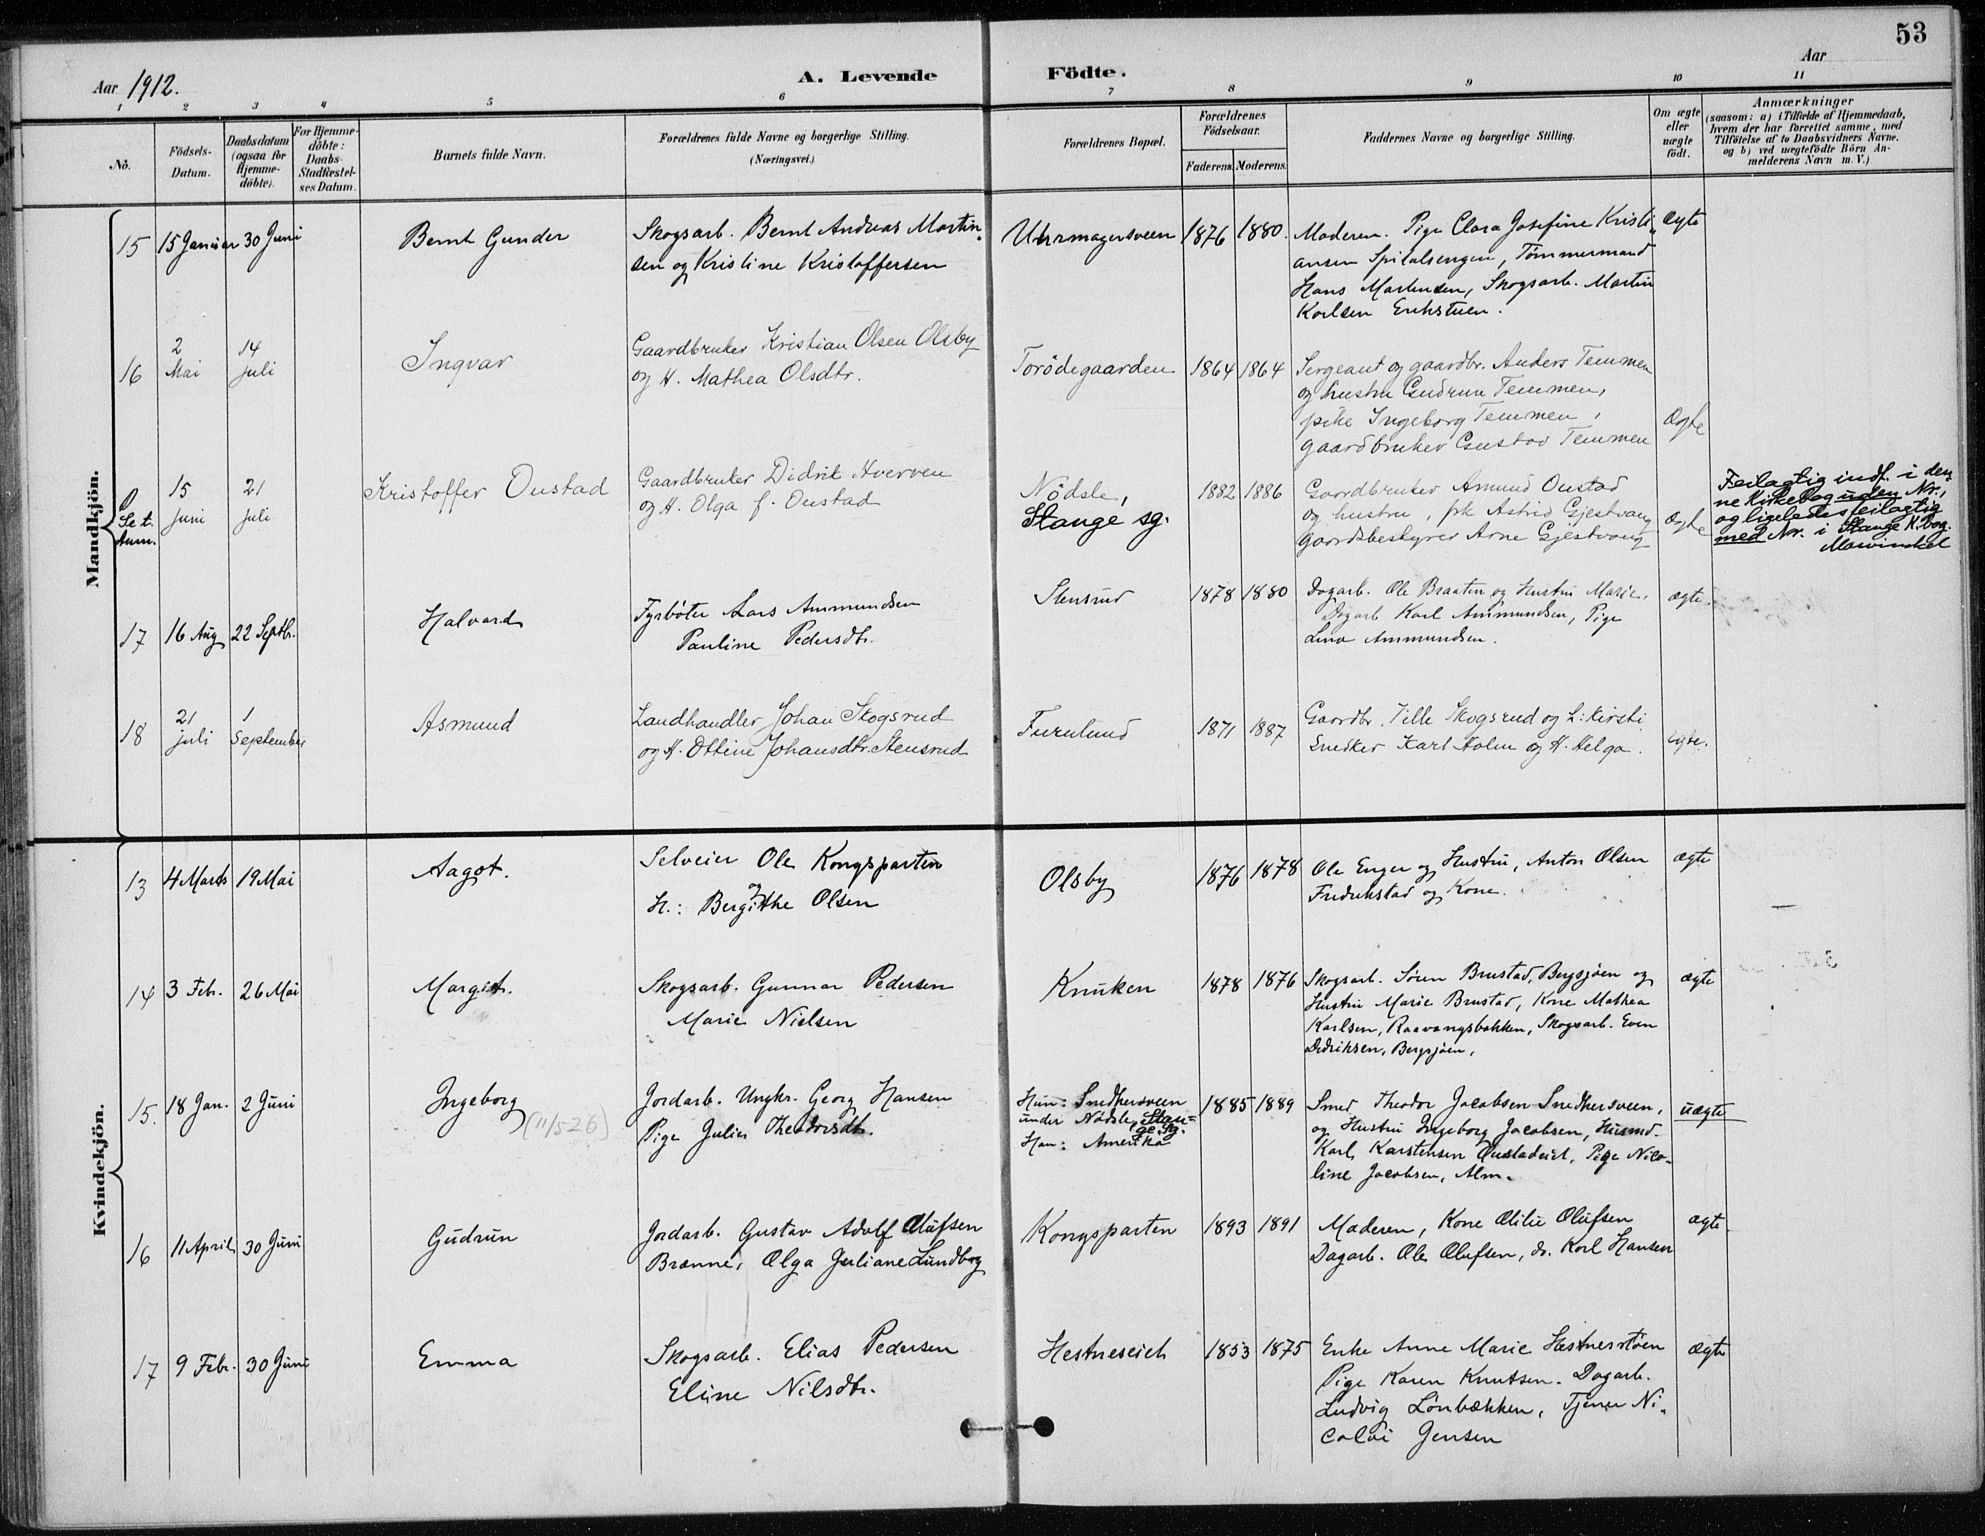 53
Aar 1912.
A. Levende Födte.
Aar
1 2 3 4 5 6 7 8 9 10 11
No.
Födsels-
Datum.
Daabsdatum
(ogsaa for
Hjemme-
döbte).
For Hjemme-
döbte:
Daabs-
Stadfestel-
ses Datum.
Barnets fulde Navn.
Forældrenes fulde Navne og borgerlige Stilling.
(Næringsvei.)
Forældrenes Bopæl.
Forældrenes
Födselsaar.
Faderens. Moderens.
Faddernes Navne og borgerlige Stilling.
Om ægte
eller
uægte
født.
Anmærkninger
(saasom: a) i Tilfælde af Hjemmedaab,
hvem der har forrettet samme, med
Tilföielse af to Daabsvidners Navne.
og b) ved uægtefödte Börn An-
melderens Navn m. V.)
Mandkjön.
15 15 Januar 30 Juni Bernt Gunder
Skogsarb. Bernt Andreas Martin-
sen og Kristine Kristoffersen
Uhrmagersveen 1876 1880.
Moderen. Pige Clara Josefine Kristi-
ansen Spitalsengen, Tömmermand
Hans Martinsen, Skogsarb. Martin
Karlsen Erikstuen.
Ægte
16 2 Mai 14 juli Ingvar
Gaardbruker Kristian Olsen Olsby
og H. Mathea Olsdtr.
Torödegaarden 1864 1864
Sergeant og gaardbr. Anders Temmen
og hustru Gudrun Temmen,
pike Ingeborg Temmen,
gaardbruker Gustav Temmen
Ægte
Se t.
Anm.
15 juni 21 juli Kristoffer Oustad
Gaardbruker Didrik Hverven
og H. Olga f. Oustad
Nödsle,
Stange sg.
1882 1886
Gaardbruker Amund Oustad
og hustru, pk Astrid Gjestvang
Gaardsbestyrer Arne Gjestvang
Ægte
Feilagtig indf. i den-
ne Kirkebog uden Nr.,
og ligeledes feilagtig
med Nr. i Stange K.bog.
17 16 Aug 22 Septbr. Halvard
Fyrböter Lars Ammundsen
Pauline Pedersdtr.
Stensrud 1878 1880
Dagarb. Ole Braaten og Hustru Marie,
Dagarb Karl Ammundsen, Pige
Lina Ammundsen.
ægte
18 21 juli 1 September Asmund
Landhandler Johan Skogsrud
og H. Ottine Johansdtr. Stensrud
Furulund 1871 1887
Gaardbr. Tille Skogsrud og L: Kirsti
Snedker Karl Holm og H. Helga.
ægte.
Kvindekjön.
13 4 Marts 19 Mai Aagot.
Selveier Ole Kongsparten
og
H.: Bergithe Olsen
Olsby 1876 1878
Ole Enger og Hustru, Anton Olsen
Fredrikstad og Kone.
ægte
14 3 Feb. 26 Mai Margit.
Skogsarb. Gunnar Pedersen
Marie Nielsen
Knuken 1878 1876
Skogsarb. Sören Brustad, Bergsjöen og
Hustru Marie Brustad, Kone Mathea
Karlsen, Raavangsbakken, Skogsarb. Even
Didriksen, Bergsjöen,
ægte
15. 18 Jan. 2 Juni Ingeborg
(11/5 26)
Jordarb. Ungkr. Georg Hansen
Pige Julie Theodorsdtr.
Hun: Snedkersveen
under Nödsle, Stan-
ge Sg.
Han: Amerika
1885 1889
Smed Theodor Jacobsen Snedkersveen,
og Hustru Ingeborg Jacobsen, Husmd.
Karl Karstensen Oustadeiet, Pige Nico-
line Jacobsen, Alm.
uægte
16 11 April 30 Juni Gudrun
Jordarb. Gustav Adolf Olufsen
Brænne, Olga Juliane Lundbog
Kongsparten 1893 1891
Moderen, Kone Otilie Olufsen
Dagarb. Ole Olufsen, do. Karl Hansen
ægte
17 9 Febr. 30 Juni Emma
Skogsarb. Elias Pedersen
Eline Nilsdtr.
Hestneseiet 1853 1875
Enke Anne Marie Hestnesstöen
Pige Karen Knutsen. Dagarb.
Ludvig Lönbækken, Tjener Ni-
colai Jensen
ægte